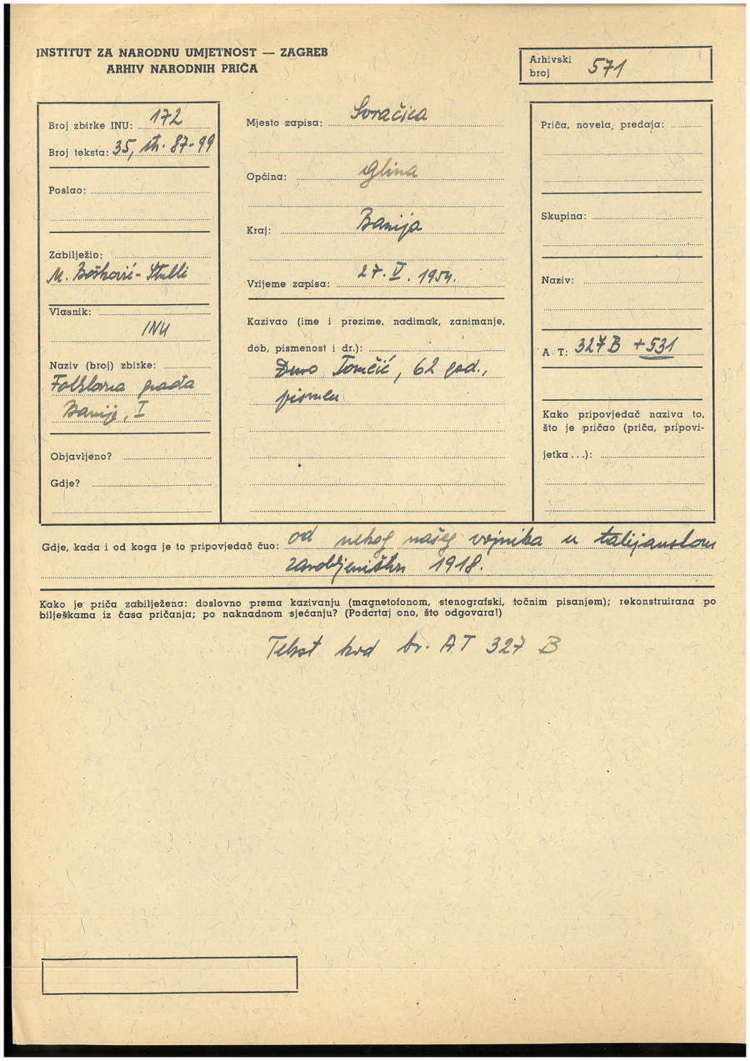 INSTITUT ZA NARODNU UMJETNOST — ZAGREB
ARHIV NARODNIH PRIČA
Arhivski broj 571
Broj zbirke INU: 172
Broj teksta: 35, str. 87-99
Poslao:
Zabilježio:
M. Bošković-Stulli
Vlasnik:
INU
Naziv (broj) zbirke:
Folklorna građa
Banije, I
Objavljeno?
Gdje?
Mjesto zapisa: Svračica
Općina: Glina
Kraj: Banija
Vrijeme zapisa: 27. V. 1954.
Kazivao (ime i prezime, nadimak, zanimanje,
dob, pismenost i dr.):
Đuro Tomčić, 62 god.,
pismen
Priča, novela, predaja:
Skupina:
Naziv:
A T: 327 B + 531
Kako pripovjedač naziva to,
što je pričao (priča, pripovi-
jetka...):
Gdje, kada i od koga je to pripovjedač čuo: od nekog našeg vojnika u talijanskom
zarobljeništvu 1918.
Kako je priča zabilježena: doslovno prema kazivanju (magnetofonom, stenografski, točnim pisanjem); rekonstruirana po
bilješkama iz časa pričanja; po naknadnom sjećanju? (Podcrtaj ono, što odgovara!)
Tekst kod br. AT 327 B